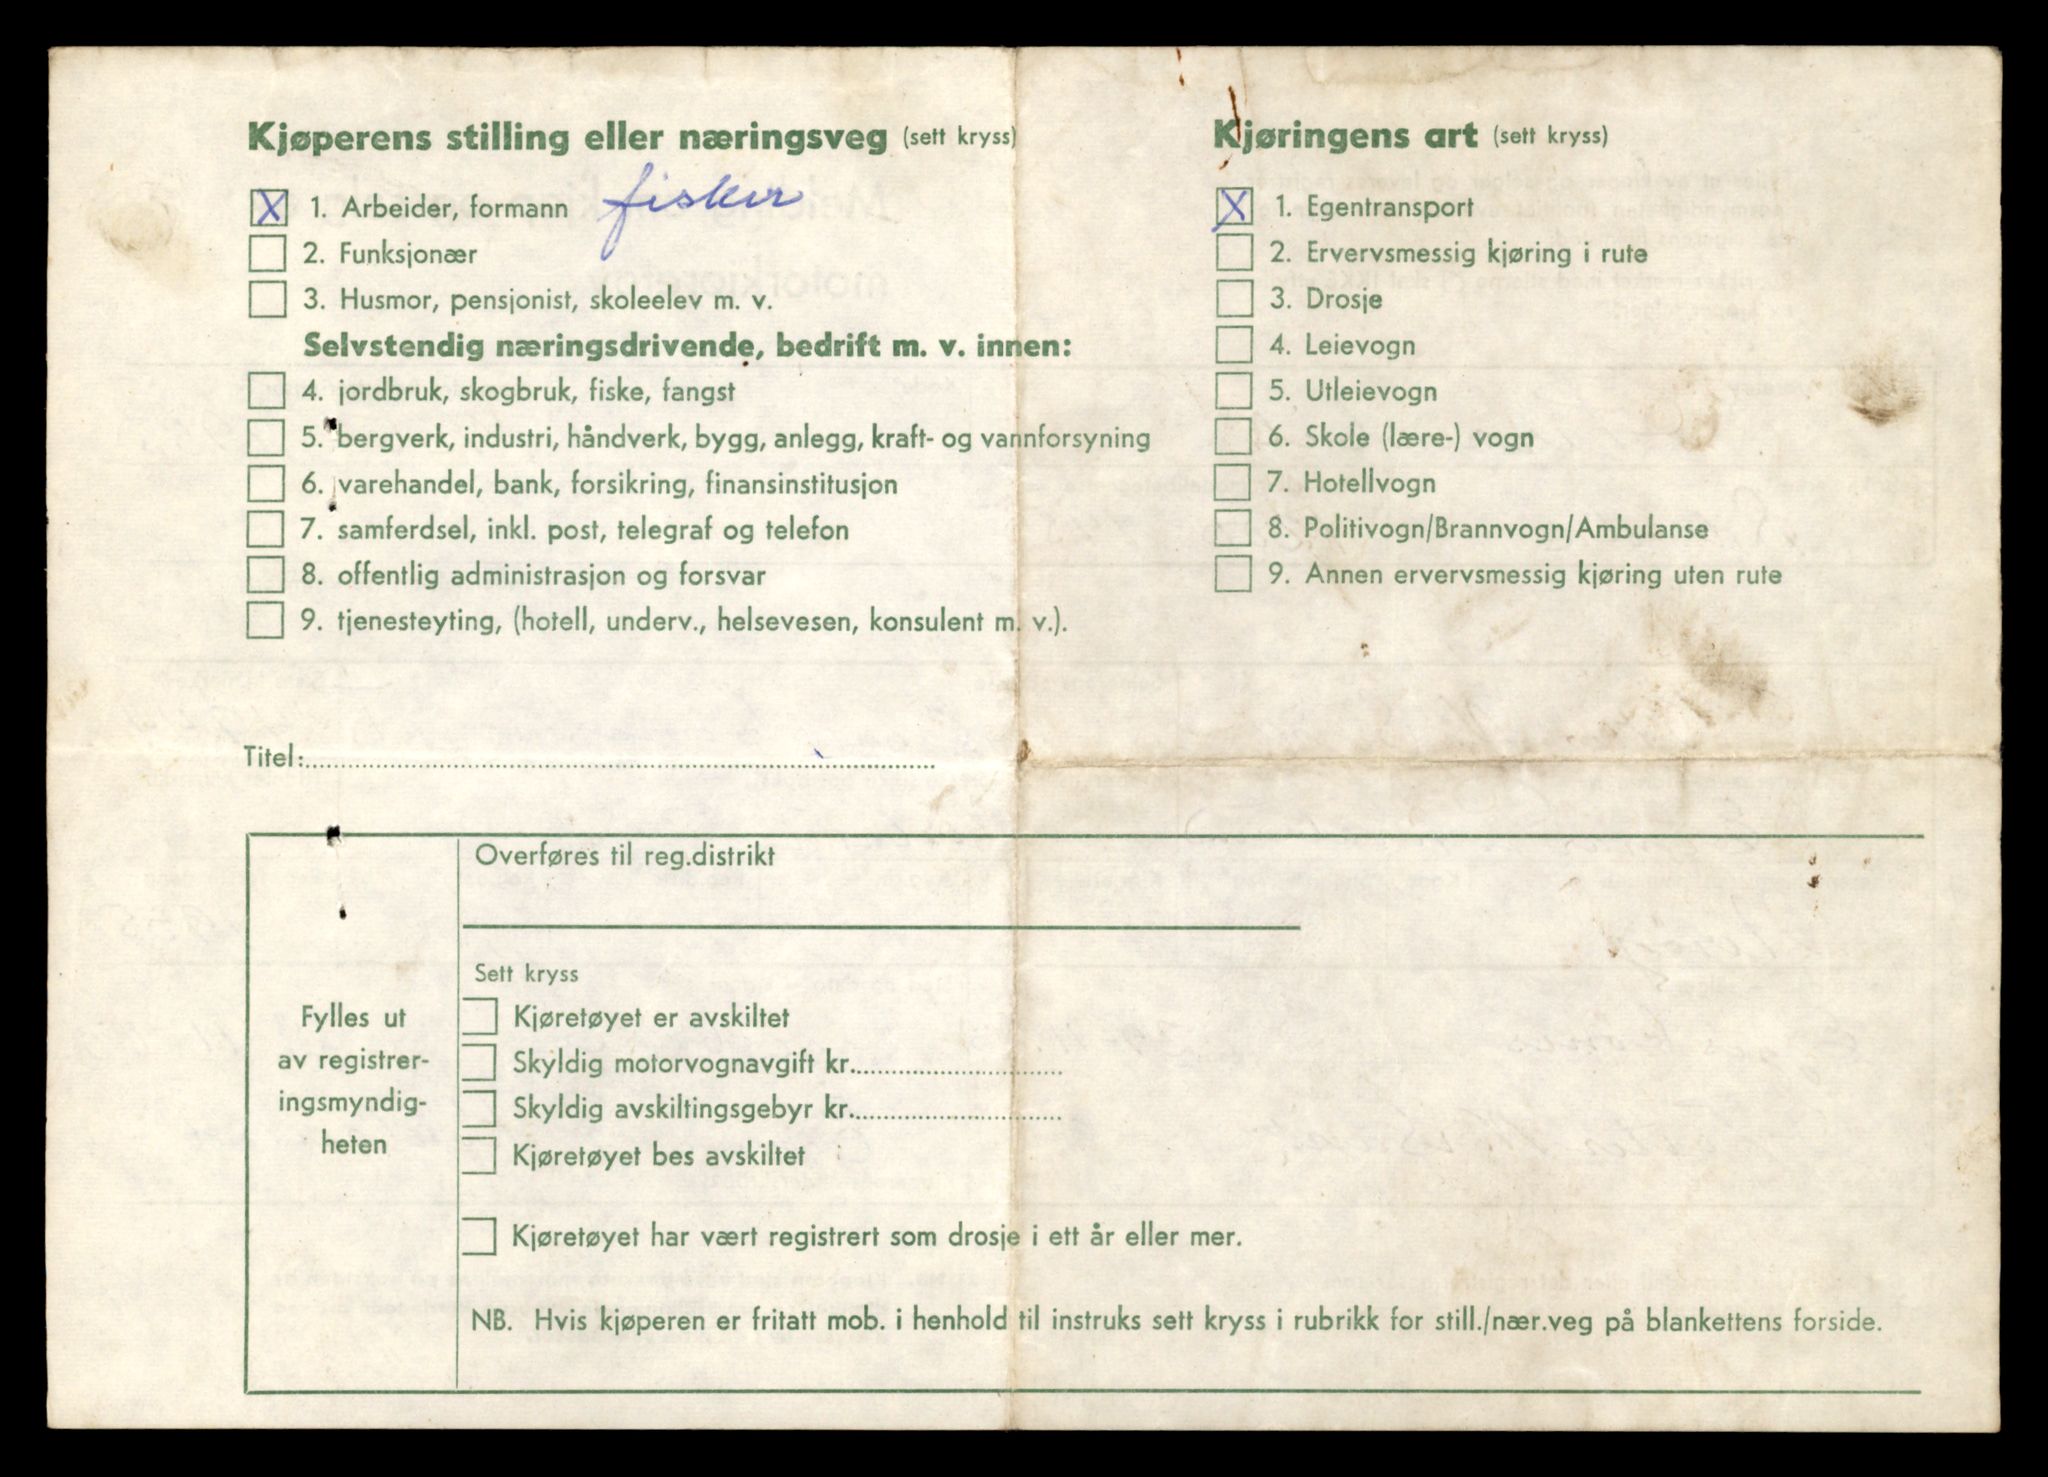 Kjøperens stilling eller næringsveg (sett kryss)
X 1. Arbeider, formann fisker
2. Funksjonær
3. Husmor, pensjonist, skoleelev m. v.
Selvstendig næringsdrivende, bedrift m. v. innen:
4. jordbruk, skogbruk, fiske, fangst
5. bergverk, industri, håndverk, bygg, anlegg, kraft- og vannforsyning
6. varehandel, bank, forsikring, finansinstitusjon
7. samferdsel, inkl. post, telegraf og telefon
8. offentlig administrasjon og forsvar
9. tjenesteyting, (hotell, underv., helsevesen, konsulent m. v.).
Titel:
Kjøringens art (sett kryss)
X 1. Egentransport
2. Ervervsmessig kjøring i rute
3. Drosje
4. Leievogn
5. Utleievogn
6. Skole (lære-) vogn
7. Hotellvogn
8. Politivogn/Brannvogn/Ambulanse
9. Annen ervervsmessig kjøring uten rute
Fylles ut
av registrer-
ingsmyndig-
heten
Overføres til reg.distrikt
Sett kryss
Kjøretøyet er avskiltet
Skyldig motorvognavgift kr.
Skyldig avskiltingsgebyr kr.
Kjøretøyet bes avskiltet
Kjøretøyet har vært registrert som drosje i ett år eller mer.
NB. Hvis kjøperen er fritatt mob. i henhold til instruks sett kryss i rubrikk for still./nær.veg på blankettens forside.